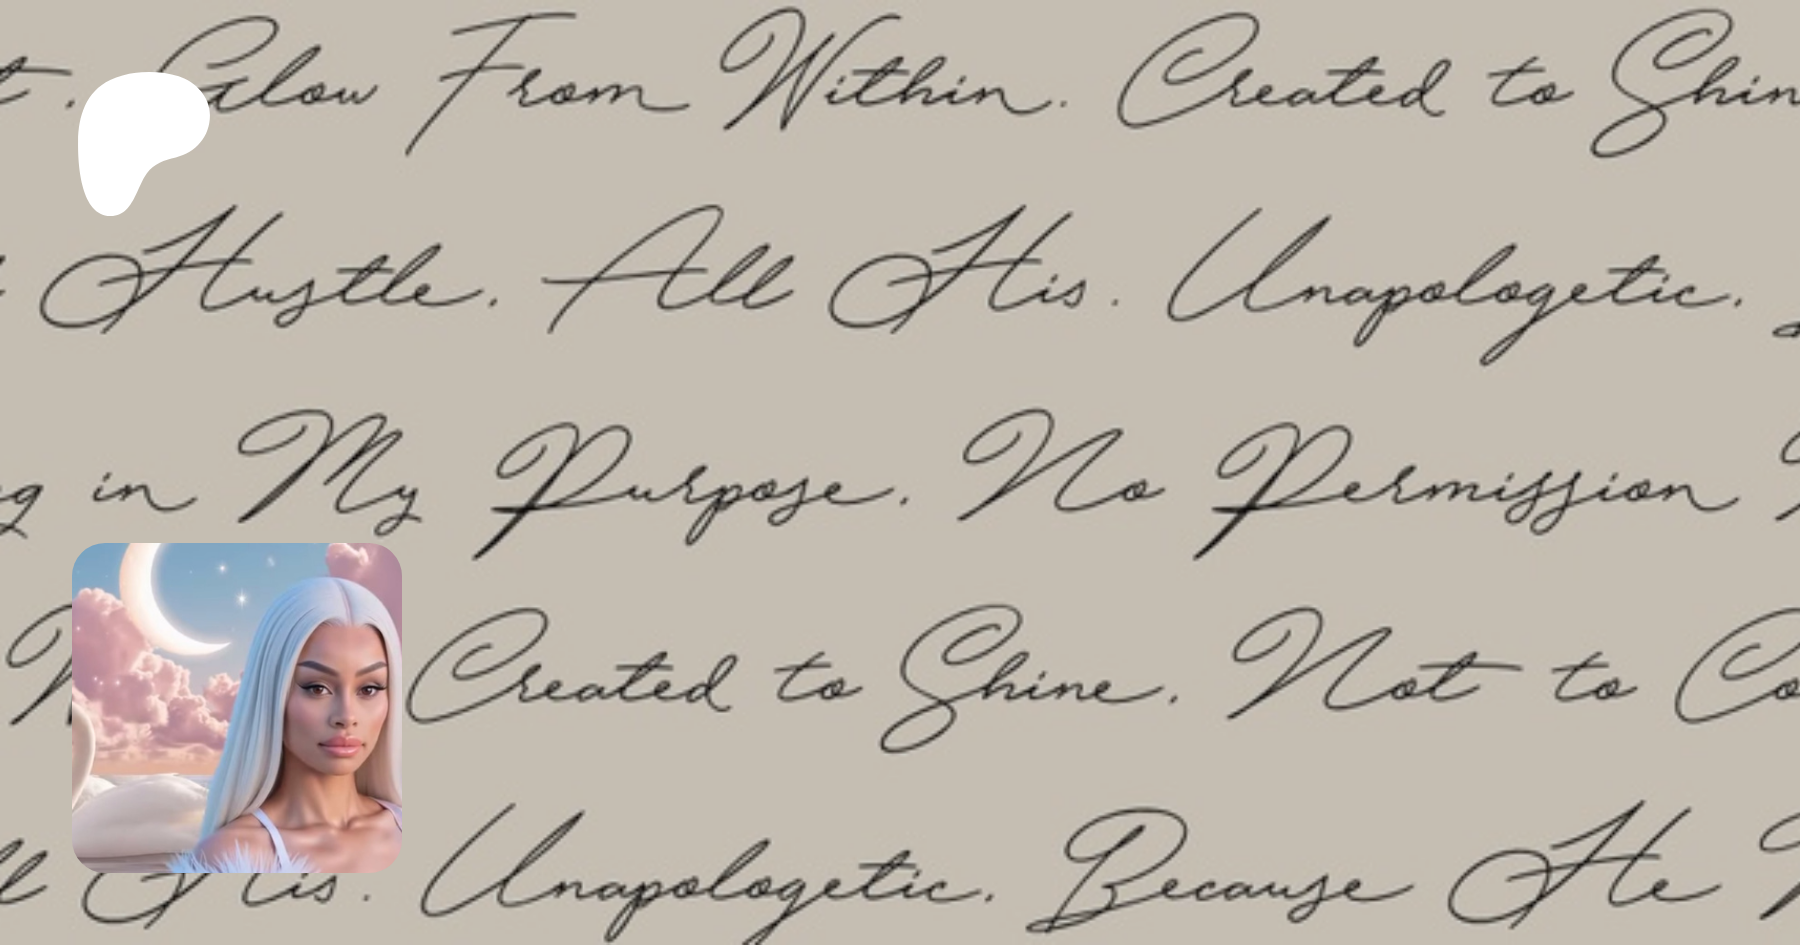 . Glow From Within. Created to Shin
Hustle. All His. Unapologetic.
in My Purpose. No Permission
Created to Shine. Not to Co
His. Unapologetic. Because He